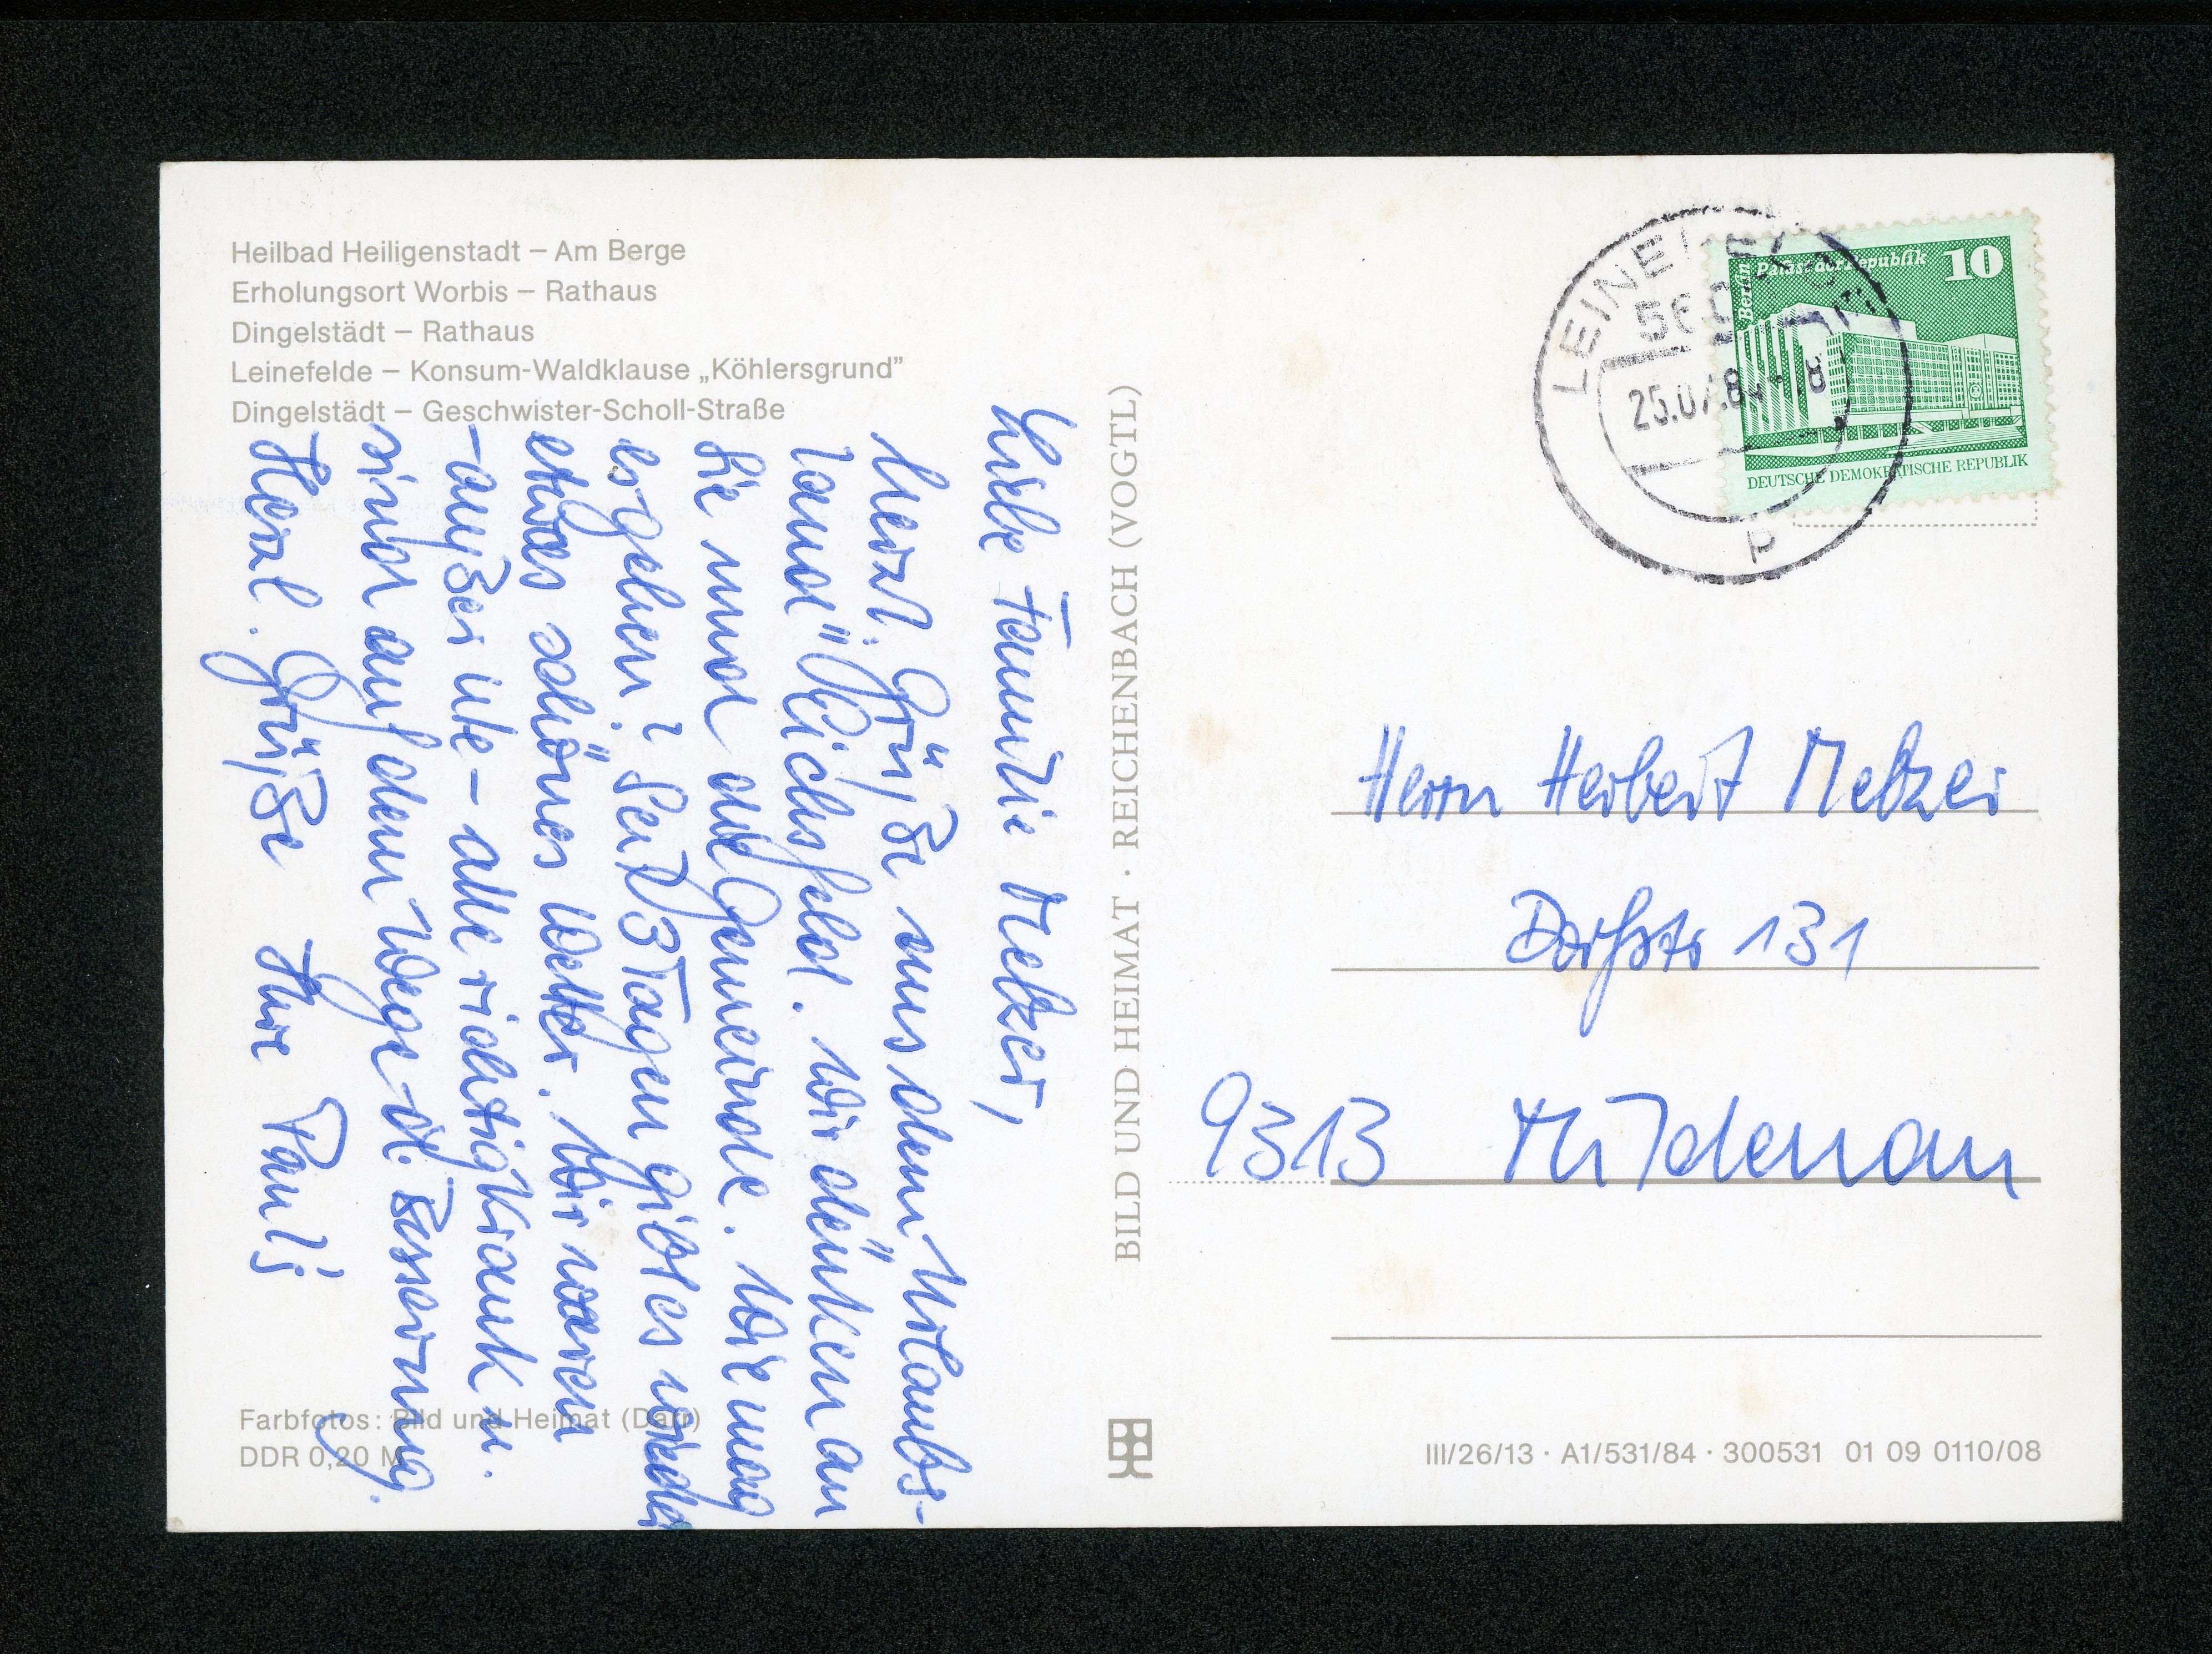 Heilbad Heiligenstadt – Am Berge
Erholungsort Worbis – Rathaus
Dingelstädt – Rathaus
Leinefelde – Konsum-Waldklause „Köhlersgrund”
Dingelstädt – Geschwister-Scholl-Straße
Liebe Familie Melzer,
herzl. Grüße aus dem Urlaubs-
land "Eichsfeld. Wir denken an
Sie und die Gemeinde. Wie mag
es gehen? Seit 3 Tagen gibt es wieder
etwas schönes Wetter. Wir waren
– außer Ute – alle richtig krank u.
sind auf dem Wege d. Besserung.
Herzl. Grüße Ihre Paul's
Farbfotos: Bild und Heimat (Darr)
DDR 0,20 M
BILD UND HEIMAT · REICHENBACH (VOGTL)
LEINEFELDE
25.07.84
P
Berlin
Palast der Republik
10
DEUTSCHE DEMOKRATISCHE REPUBLIK
Herrn Herbert Melzer
Dorfstr 131
9313 Mildenau
III/26/13 · A1/531/84 · 300531 01 09 0110/08